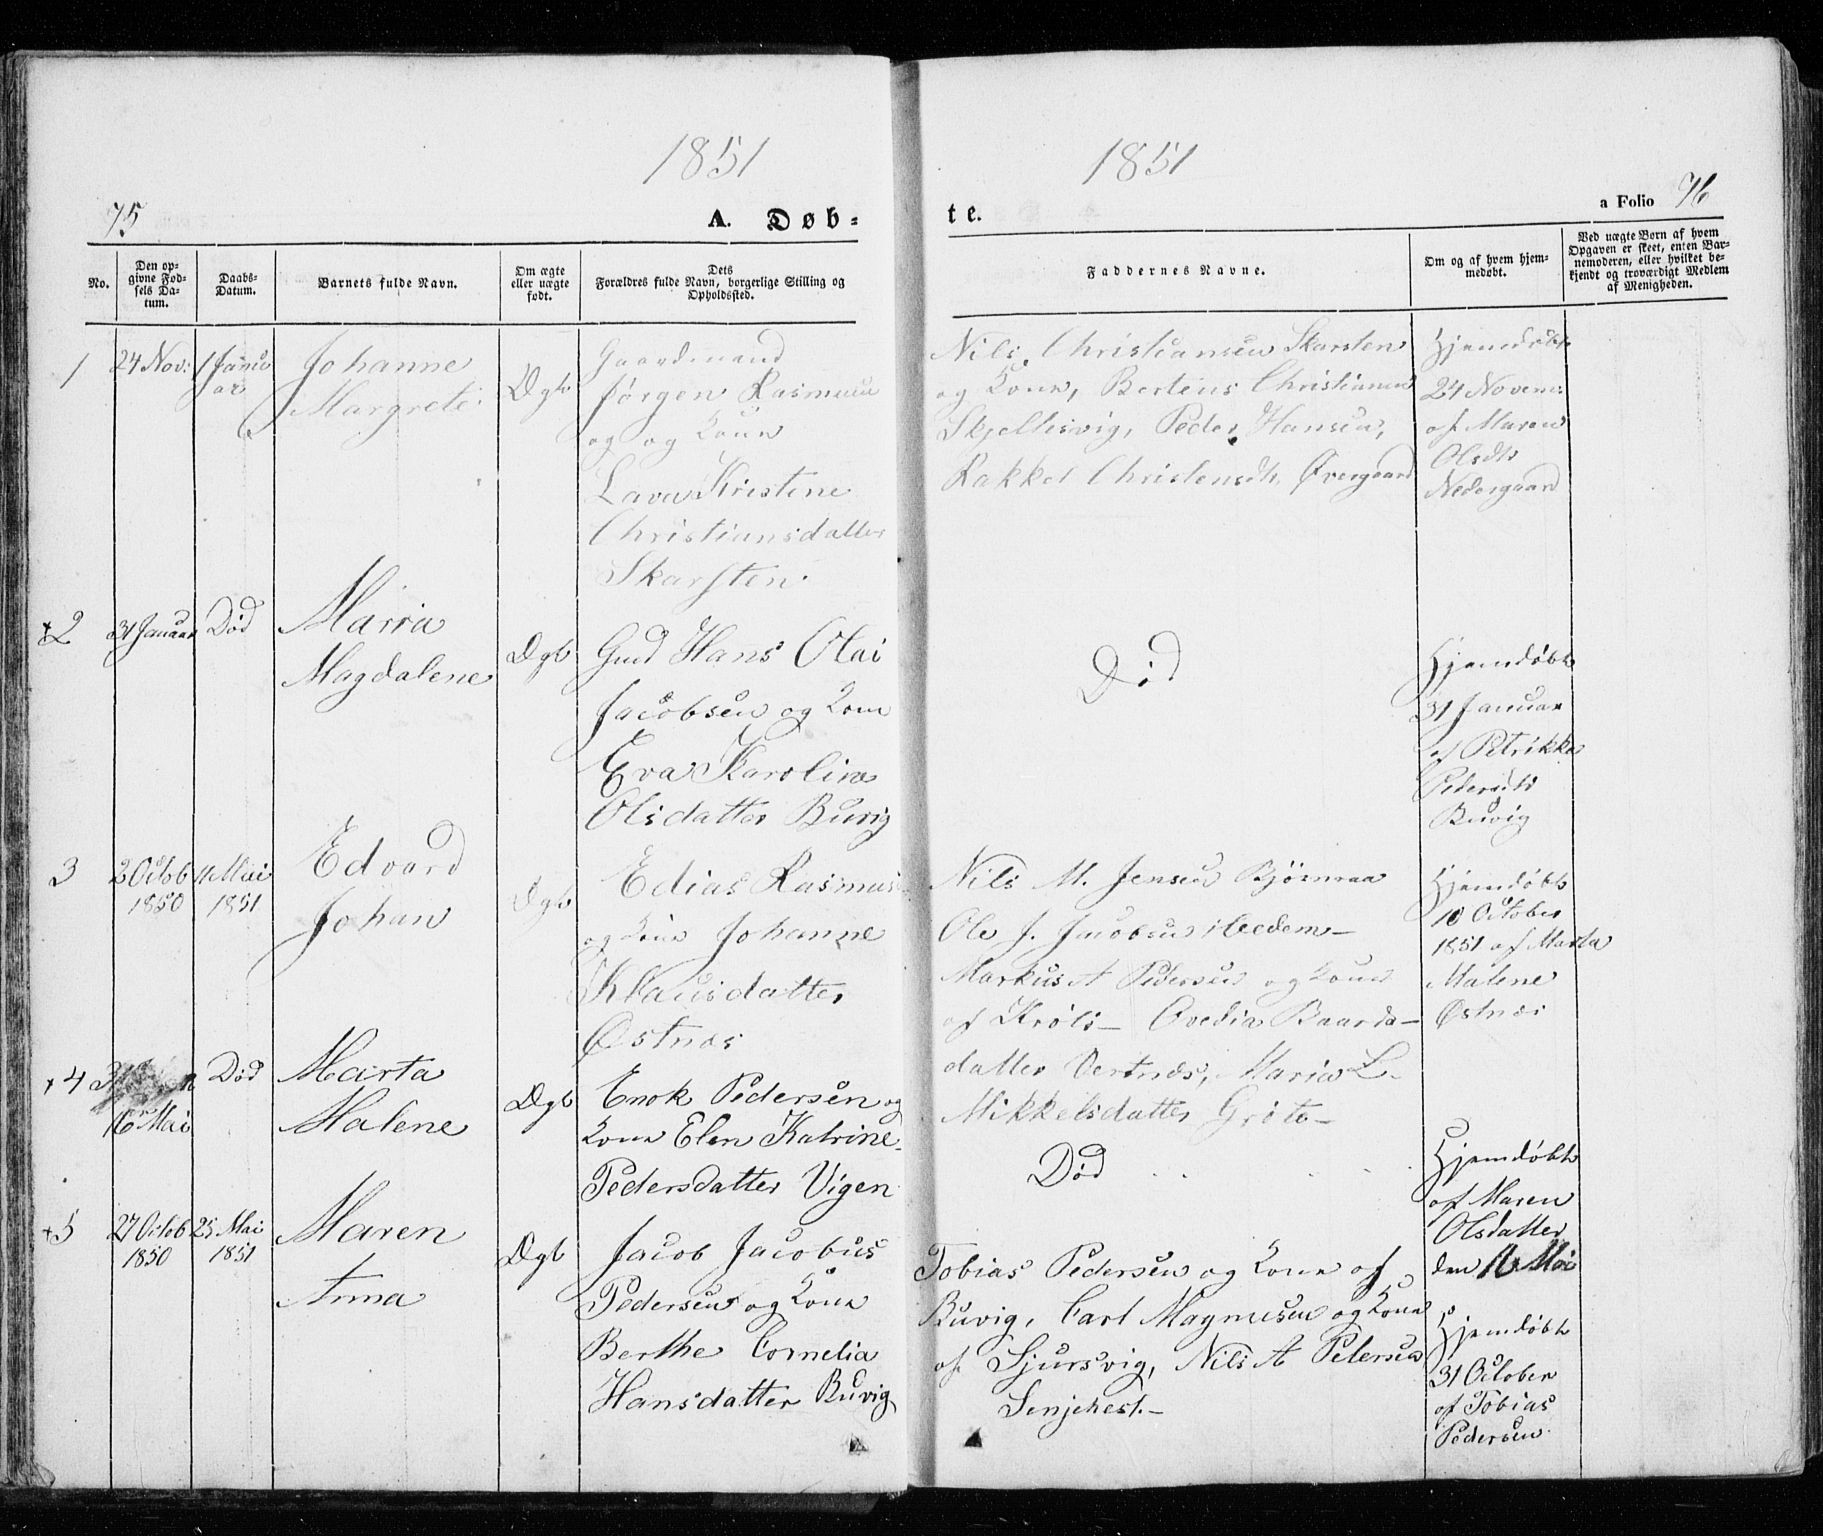 1851
1851
75
A. Døb-
te.
a Folio 76
No.
Den op-
givne Fød-
sels Da-
tum.
Daabs-
Datum.
Barnets fulde Navn.
Om ægte
eller uægte
født.
Dets
Forældres fulde Navn, borgerlige Stilling og
Opholdssted.
Faddernes Navne.
Om og af hvem hjem-
medøbt.
Ved uægte Børn af hvem
Opgaven er skeet, enten Bar-
nemoderen, eller hvilket be-
kjendt og troværdigt Medlem
af Menigheden.
1
24 Nov:
1 Janu
ar
Johanne
Margrete
Ægt
Gaardmand
Jørgen Rasmusen
og og Kone
Lava Kristine
Christiansdatter
Skarsten
Nils Christiansen Skarsten
og Kone, Berteus Christiansen
Skjellesvig, Peder Hansen,
Rakkel Christensdtr Øvergaard
Hjemdøbt
24 Novem:
af Maren
Olsdtr
Nedergaard
+2
31 Januar
Død
Maria
Magdalene
Ægt
Gmd Hans Olai
Jacobsen og Kone
Eva Karoline
Olsdatter Buvig
Død
Hjemdøbt
31 Januar
af Petrikke
Pedersdtr
Buvig
3
2 Octob
1850
11 Mai
1851
Edvard
Johan
Ægt
Edias Rasmus
og Kone Johanne
Klausdatter
Østnæs
Nils M. Jensen Bjørnraa
Ole J. Jacobsen Medem-
Markus A Pedersen og Kone
af Krøls- Ovedia Baards-
datter Vertnæs, Maria L.
Mikkelsdatter Grøte-
Hjemdøbt
10 October
1851 af Marta
Malene
Østnæs
+4
16 Mai
Død
Marta
Malene
Ægt
Enok Pedersen og
Kone Elen Katrine
Pedersdatter Vigen
Død
Hjemdøbt
af Maren
Olsdatter
den 16 Mai
+5
27 Octob
1850
25 Mai
1851
Maren
Anna
Ægt
Jacob Jacobus
Pedersen og Kone
Berthe Cornelia
Hansdatter Buvig
Tobias Pedersen og Kone af
Buvig, Carl Magnusen og Kone
af Sjursvig, Nils A Petersen
Senjehest.-
Hjemdøbt
31 October
af Tobias
Pedersen